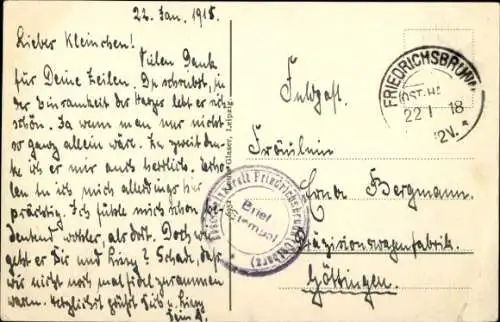 22. Jan. 1918.
Lieber Kleinchen!
Vielen Dank
für Deine Zeilen. Du schreibst, in
der Einsamkeit des Harzes lebt er sich
schön. Ja wenn man nur nicht
so ganz allein wäre. Zu zweit
es mir auch herrlich.
len tu ich mich allerdings hier
prächtig. Ich fühle mich schon
deutend wohler, als dort. Doch wie
geht es Dir und ? Schade, daß
wir nicht noch mal hier zusammen
waren. Herzlichst grüßt Dich u.
Dein
Glaser, Leipzig.
Feldpost.
Fräulein
Erna Bergmann.
Präzisionswagenfabrik.
Göttingen.
FRIEDRICHSBRUNN
(OST-HA
22 1 18
Friedrichsbrunn
Brief
stempel